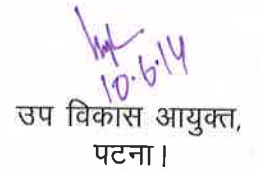 10.6.14
उप विकास आयुक्त,
पटना।